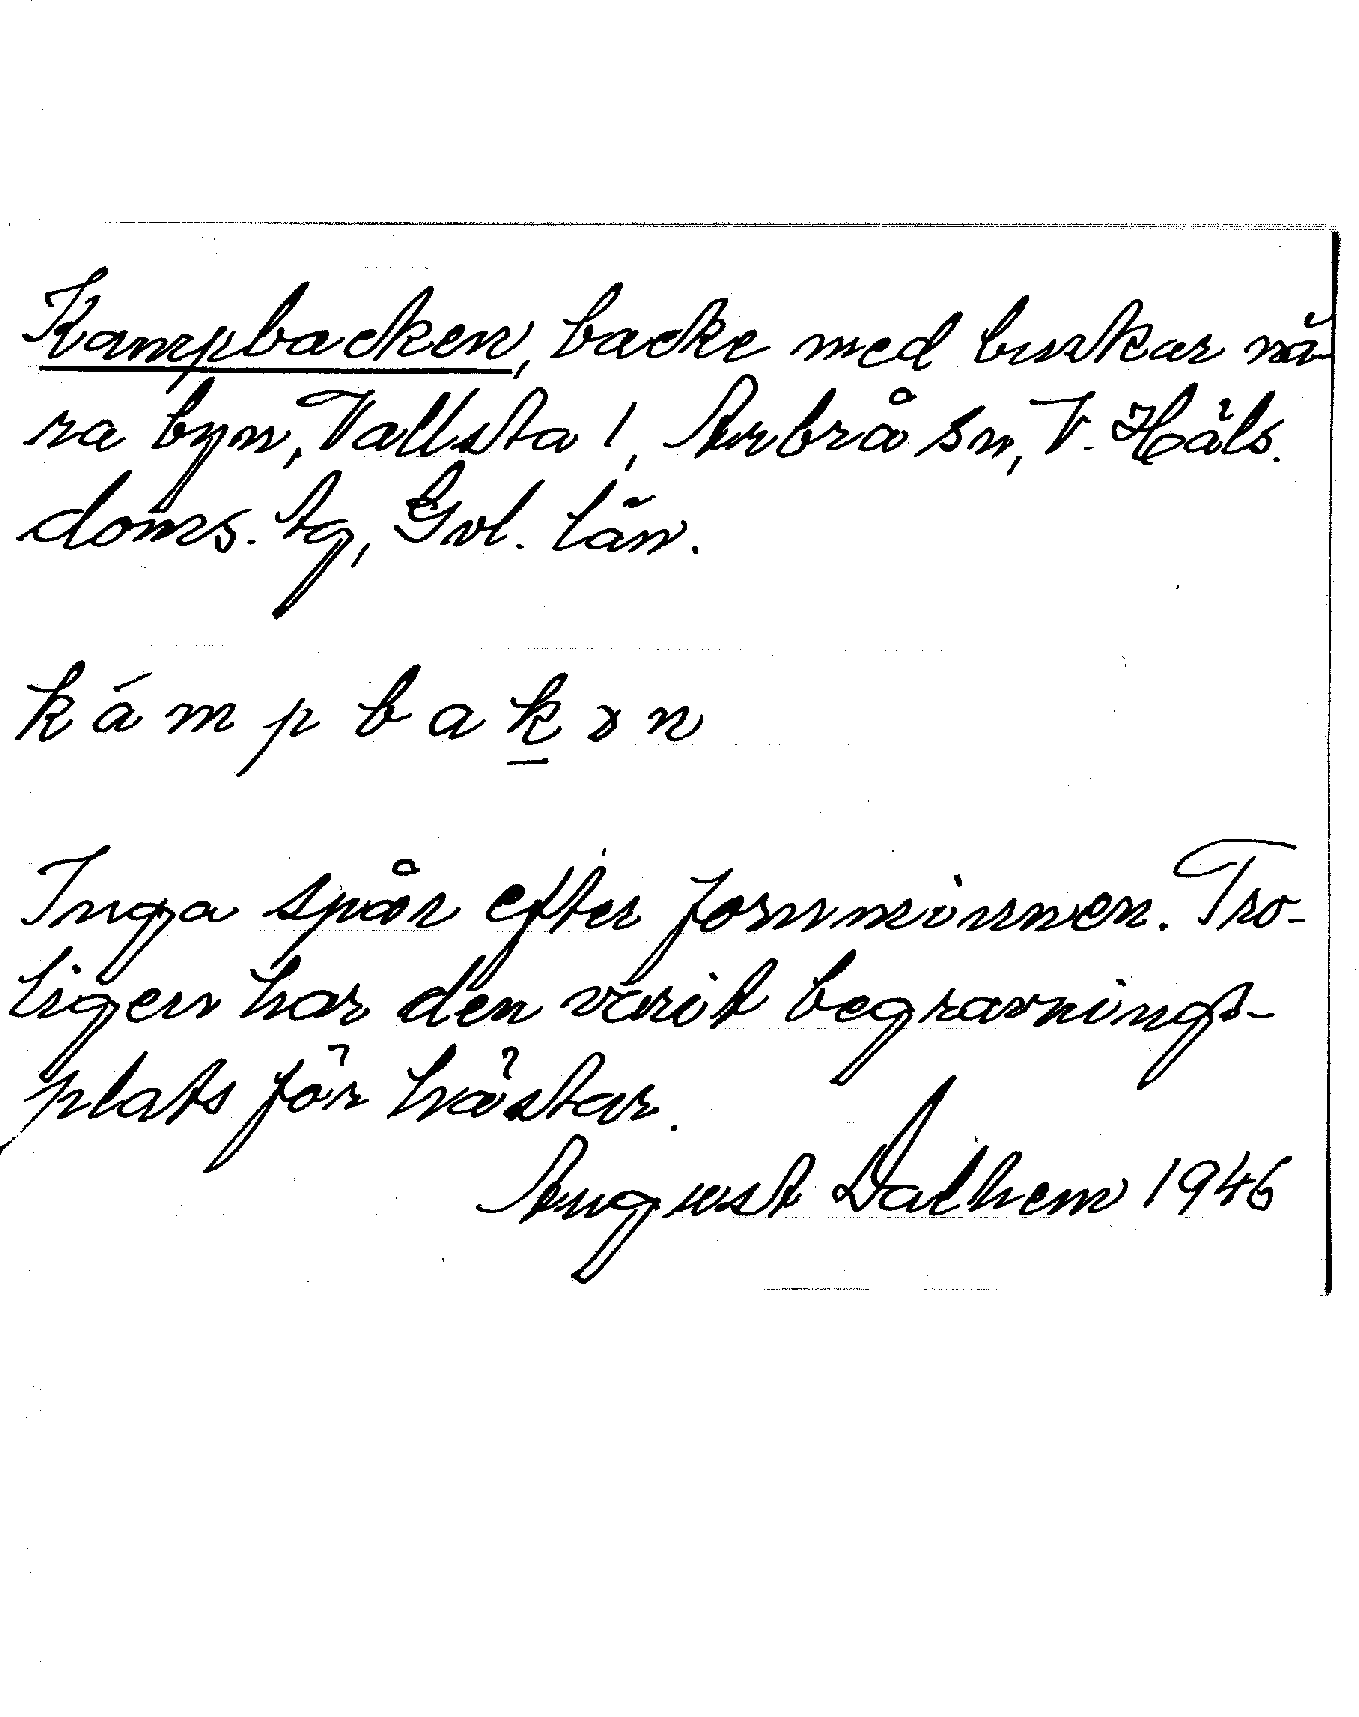 Kampbacken, backe med buskar nä-
ra byn, Vallsta 1, Arbrå sn, V. Häls.
doms. tg, Gvl. län.
kámpbakən
Inga spår efter fornminnen. Tro-
ligen har den varit begravnings-
plats för hästar.
August Dalhem 1946